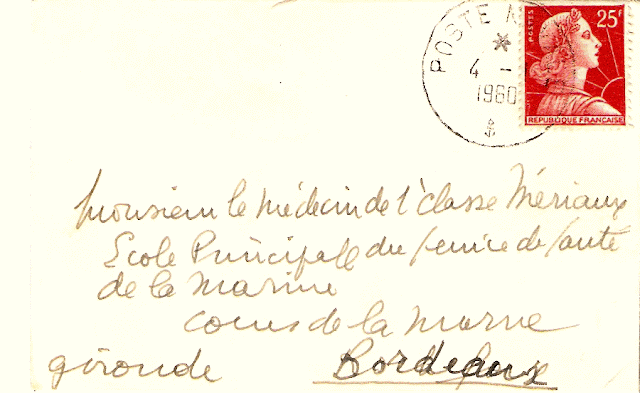 POSTE N
4 -
1960
POSTES
25F
REPUBLIQUE FRANÇAISE
Monsieur le Médecin de 1'classe Mériaux
Ecole Principale du Service de Santé
de la Marine
cours de la Marne
gironde Bordeaux